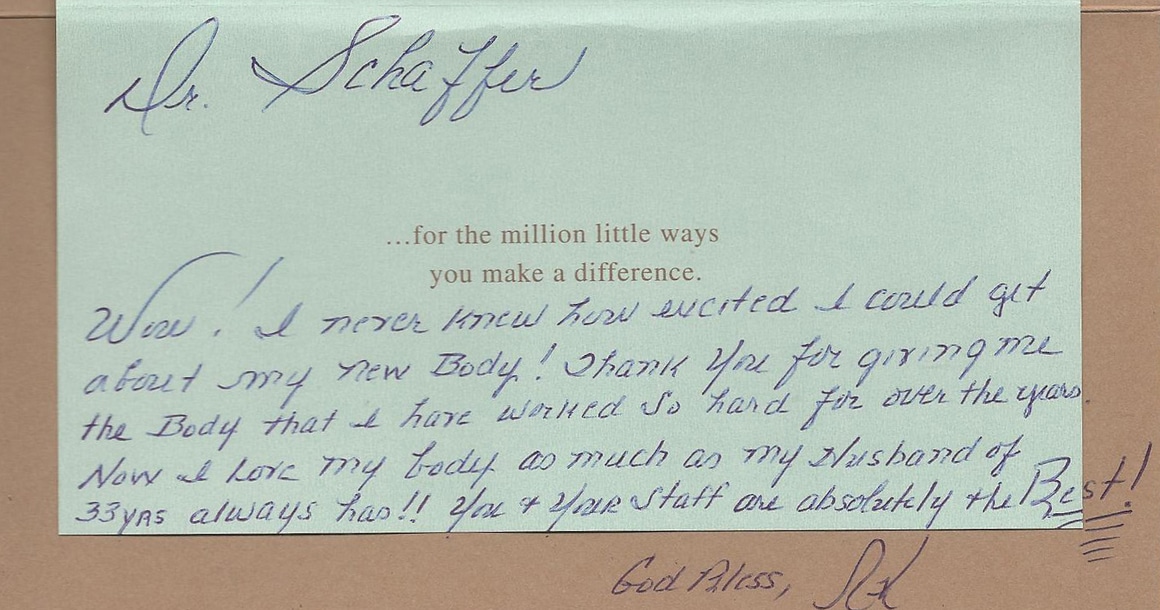 Dr. Schaffer
...for the million little ways
you make a difference.
Wow! I never knew how excited I could get
about my new Body! Thank You for giving me
the Body that I have worked so hard for over the years.
Now I love my body as much as my Husband of
33 yrs always has!! You + Your Staff are absolutely the Best!
God Bless,